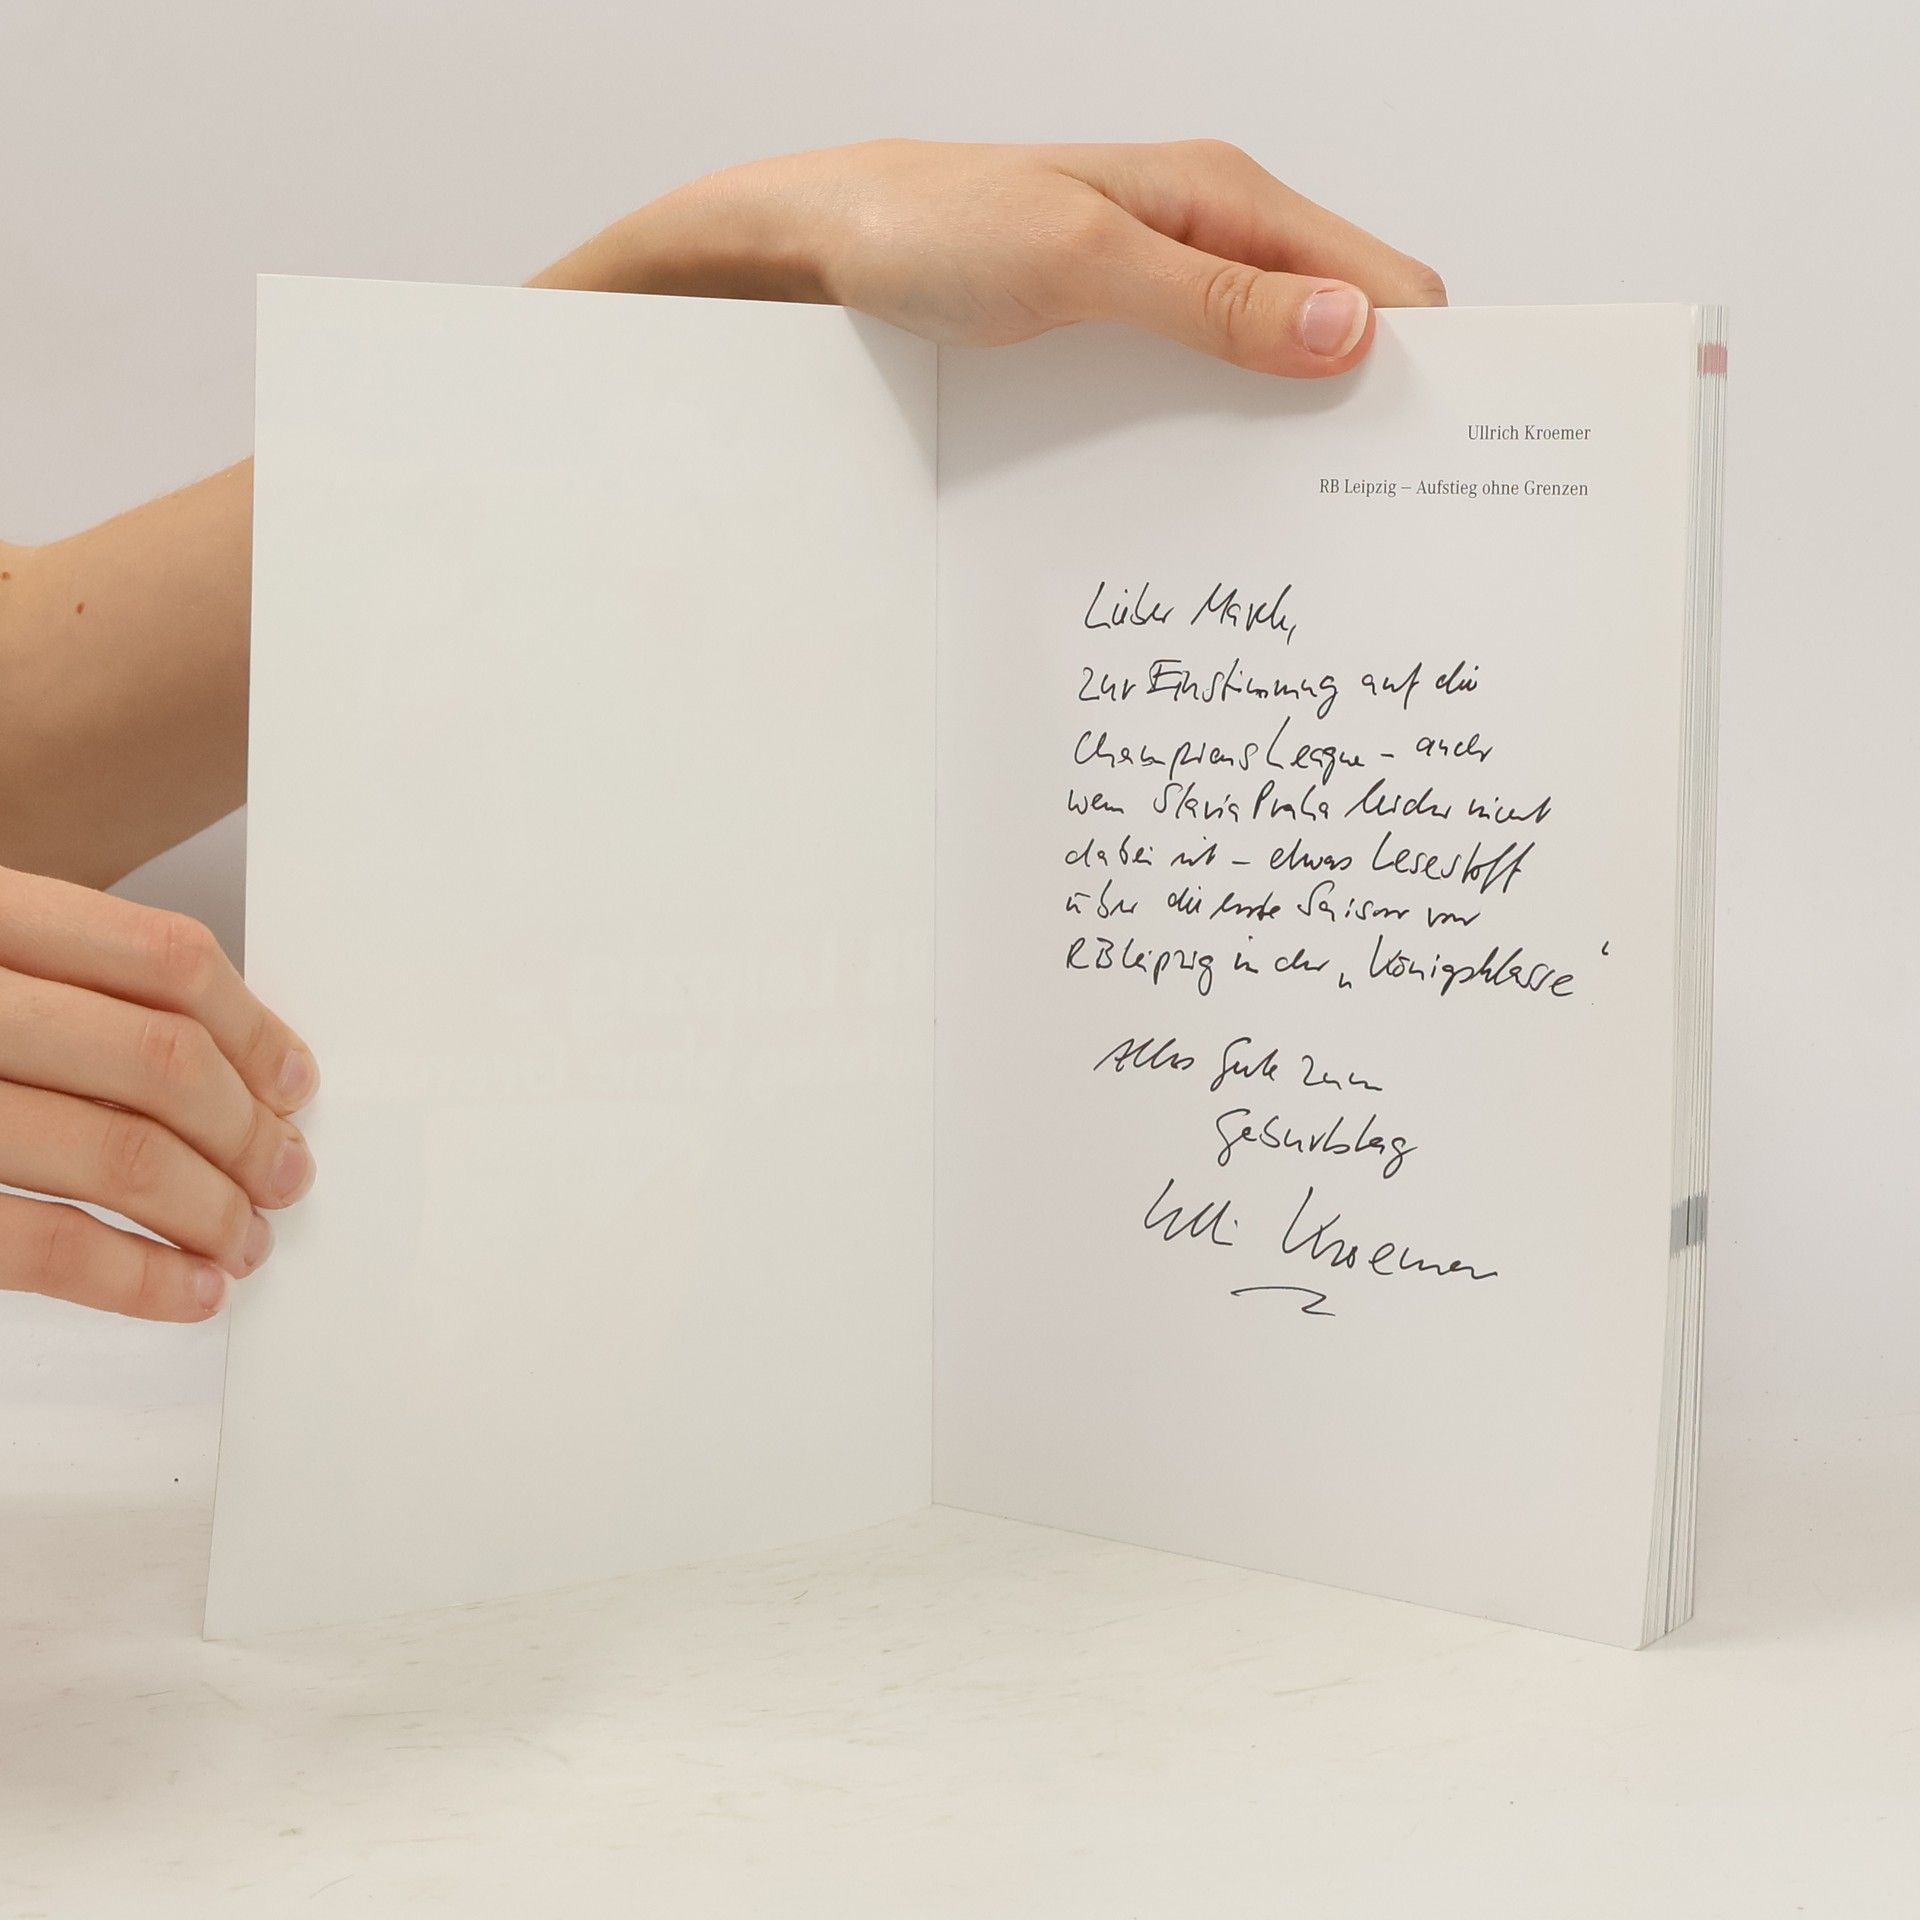 Ullrich Kroemer
RB Leipzig – Aufstieg ohne Grenzen
Lieber
zur Einstimmung auf die
Champions League – auch
wenn Slavia Praha leider nicht
dabei ist – etwas Lesestoff
über die erste Saison von
RB Leipzig in der „Königsklasse“
Alles Gute zum
Geburtstag
Ulli Kroemer